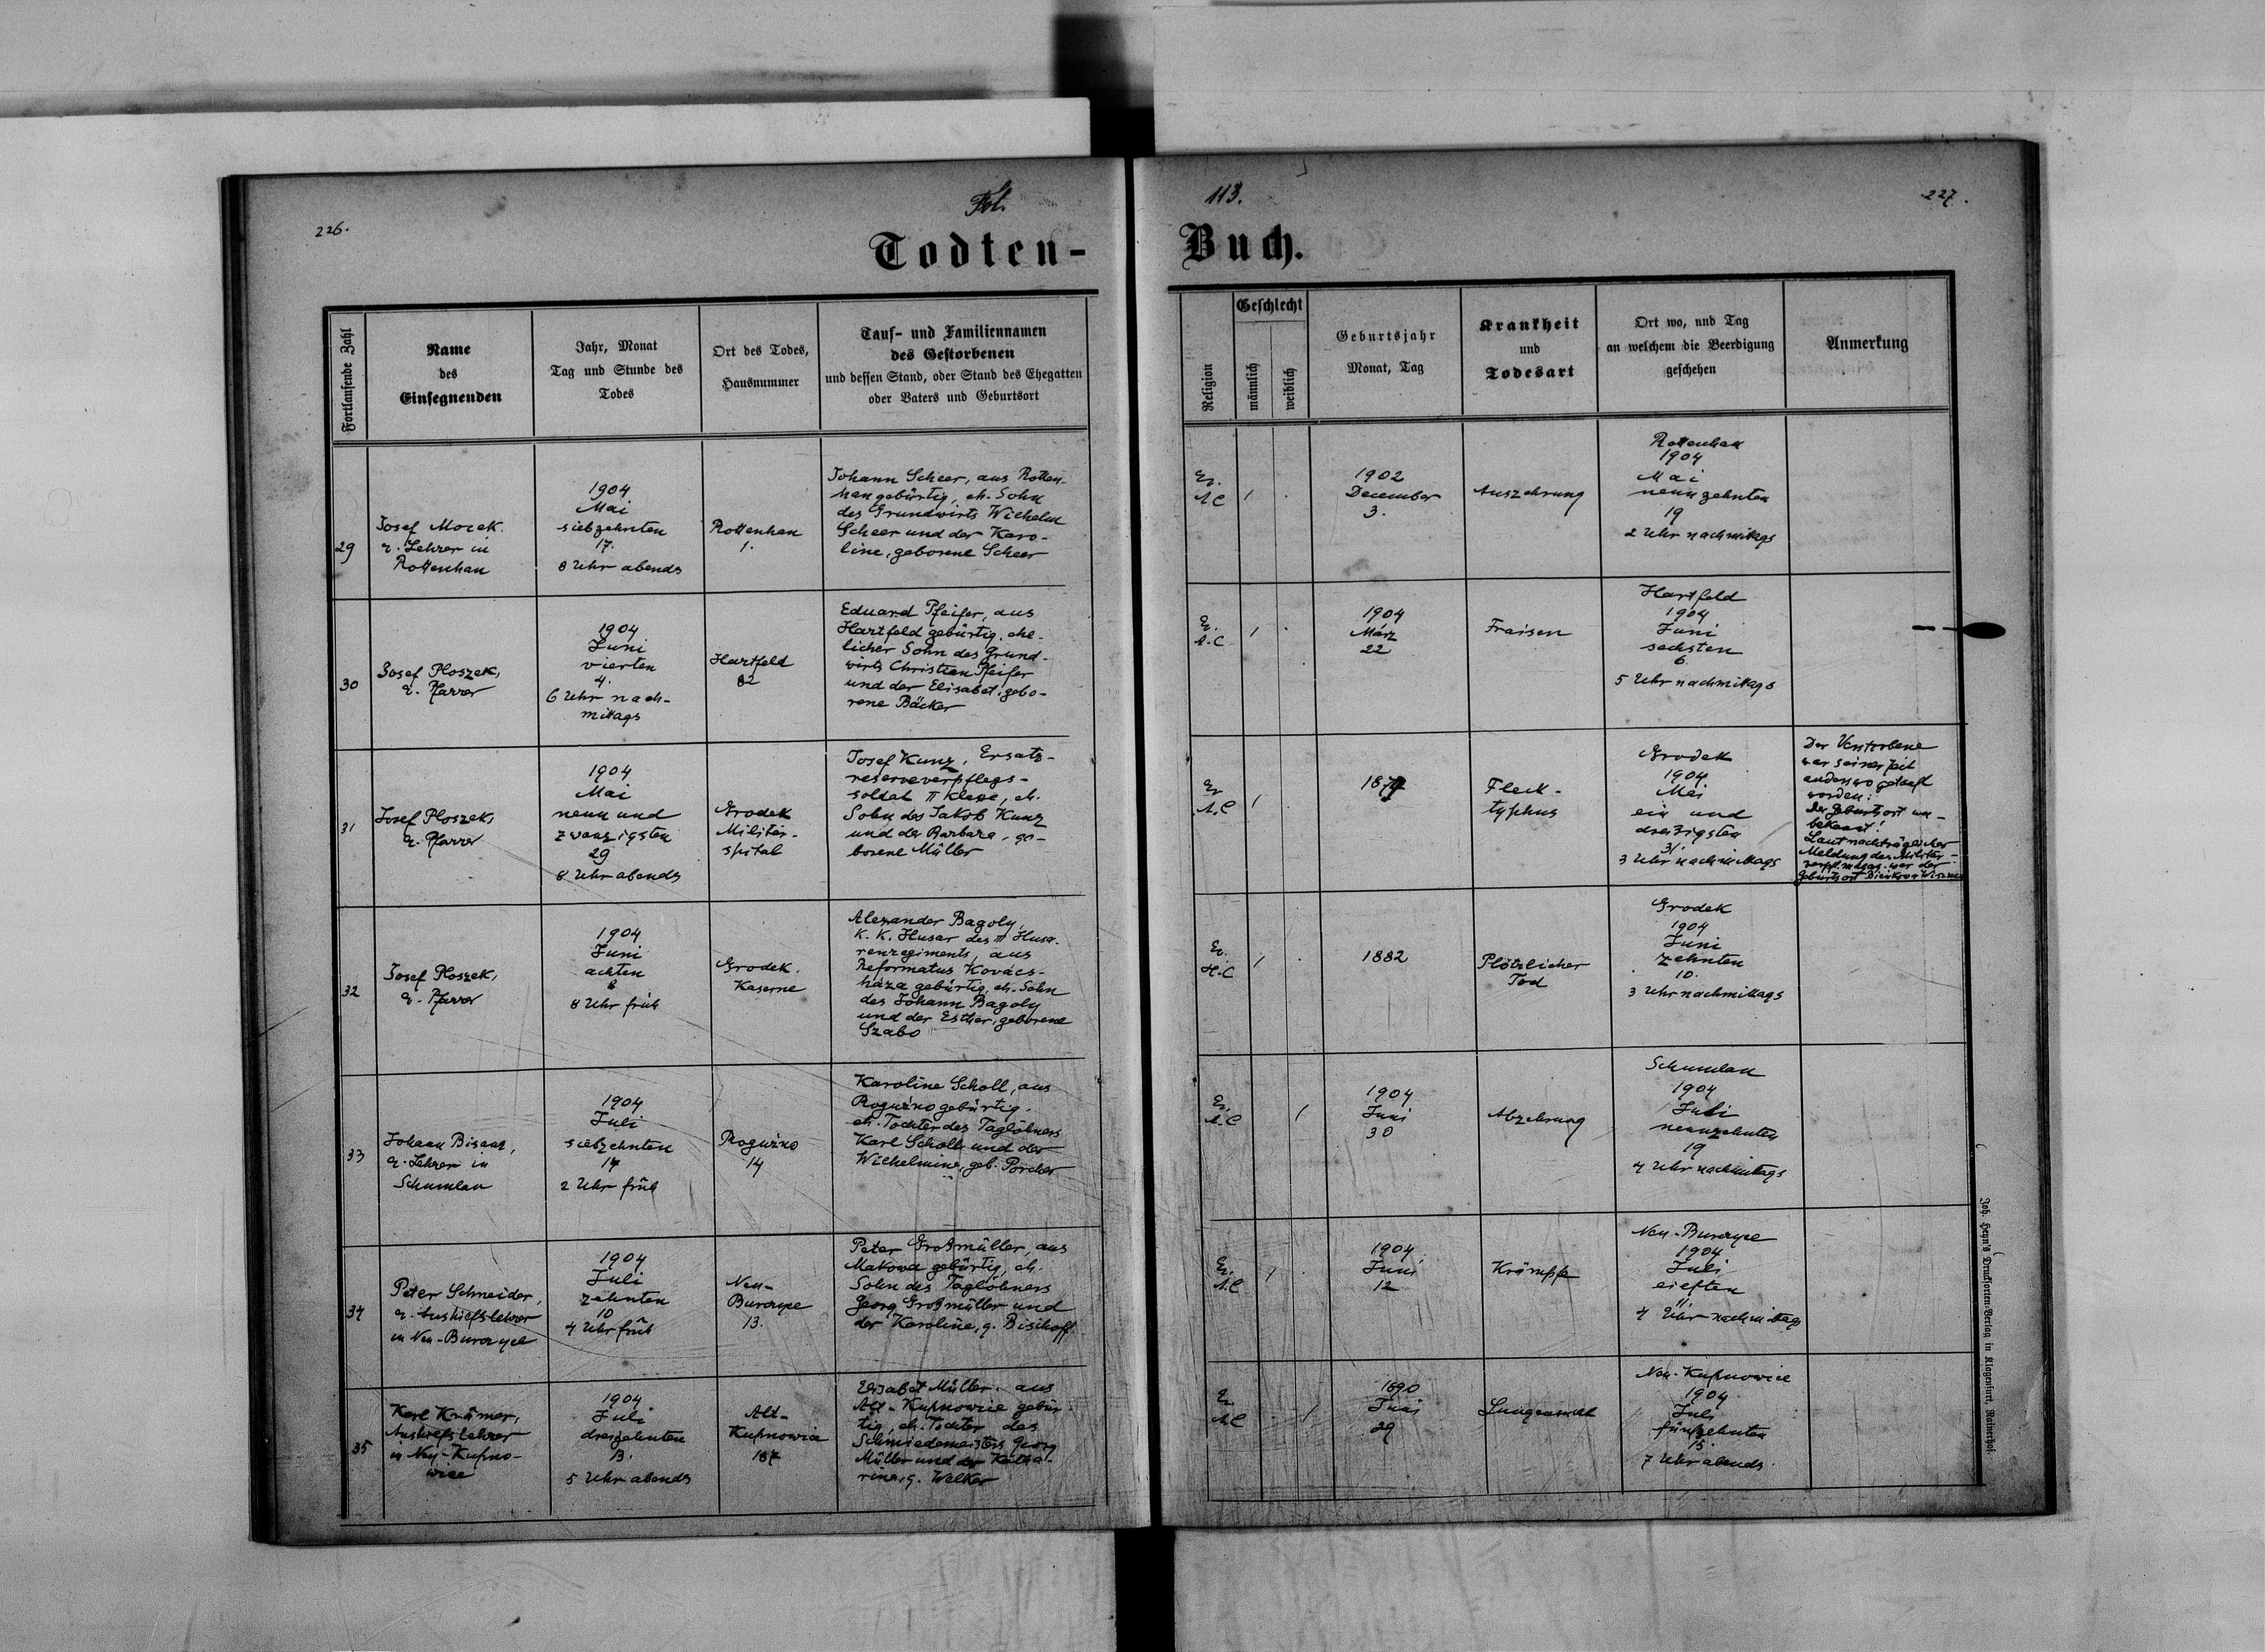 226.
Fol.
113.
227.
Todten-
Buch.
Fortlaufende Zahl
Name
des
Einsegnenden
Jahr, Monat
Tag und Stunde des
Todes
Ort des Todes,
Hausnummer
Tauf- und Familiennamen
des Gestorbenen
und dessen Stand, oder Stand des Ehegatten
oder Vaters und Geburtsort
Religion
Geschlecht
männlich
weiblich
Geburtsjahr
Monat, Tag
Krankheit
und
Todesart
Ort wo, und Tag
an welchem die Beerdigung
geschehen
Anmerkung
29
Josef Mocek
e. Lehrer in
Rottenhan
1904
Mai
siebzehnten
17.
8 Uhr abends
Rottenhan
1.
Johann Scheer, aus Rotten-
han gebürtig, eh. Sohn
des Grundwirts Wilhelm
Scheer und der Karo-
line, geborene Scheer
Ev.
A.C
1
1902
December
3.
Auszehrung
Rottenhan
1904
Mai
neunzehnten
19
2 Uhr nachmittags
30
Josef Ploszek,
e. Pfarrer
1904
Juni
vierten
4.
6 Uhr nach-
mittags
Hartfeld
82
Eduard Pfeifer, aus
Hartfeld gebürtig, ehe-
licher Sohn des Grund-
wirts Christian Pfeifer
und der Elisabet, gebo-
rene Bäcker
Ev.
A.C
1
1904
März
22
Fraisen
Hartfeld
1904
Juni
sechsten
6.
5 Uhr nachmittags
31
Josef Ploszek,
e. Pfarrer
1904
Mai
neun und
zwanzigsten
29
8 Uhr abends
Grodek
Militär-
spital
Josef Kunz, Ersatz-
reserveverpflegs-
soldat II Klasse, eh.
Sohn des Jakob Kunz
und der Barbara, ge-
borene Müller
Ev
A.C
1
Fleck-
typhus
Grodek
1904
Mai
ein und
dreizigsten
31.
3 Uhr nachmittags
Der Verstorbene
war seiner Zeit
anderswo getauft
worden:
Der Geburtsort un-
bekannt!
Laut nachträglicher
Meldung des Militär-
verpfl. magaz. war der
Geburtsort
32
Josef Ploszek,
e. Pfarrer
1904
Juni
achten
8
8 Uhr früh
Grodek.
Kaserne
Alexander Bagoly,
K. K. Husar des III Husa-
renregiments, aus
Reformatus Kovács-
háza gebürtig, eh. Sohn
des Johann Bagoly
und der Esther, geborene
Szabo
Ev.
H.C
1
1882
Plötzlicher
Tod
Grodek
1904
Juni
zehnten
10.
3 Uhr nachmittags
33
Johann Bisanz,
e. Lehrer in
Schumlau
1904
Juli
siebzehnten
17
2 Uhr früh
Roguźno
14
Karoline Scholl, aus
Roguźno gebürtig,
eh. Tochter des Taglöhners
Karl Scholl und der
Wilhelmine, geb. Porcher
Ev.
A.C
1
1904
Juni
30
Abzehrung
Schumlau
1904
Juli
neunzehnten
19
4 Uhr nachmittags
34
Peter Schneider,
e. Aushilfslehrer
in Neu-Burczyce
1904
Juli
zehnten
10
4 Uhr früh
Neu-
Burczyce
13.
Peter Großmüller, aus
Makowa gebürtig, eh.
Sohn des Taglöhners
Georg Großmüller und
der Karoline, g. Bisihoff
Ev.
A.C
1
1904
Juni
12
Krämpfe
Neu-Burczyce
1904
Juli
eielften
11.
4 Uhr nachmittags
35
Karl Krämer,
Aushilfslehrer
in Neu-Kupno-
wice
1904
Juli
dreizehnten
13.
5 Uhr abends
Alt-
Kupnowice
187
Elisabet Müller, aus
Alt-Kupnowice gebür-
tig, eh. Tochter des
Schmiedemeisters Georg
Müller und der Katha-
rina, g. Welker
Ev
A.C
1
1890
Juni
29
Lungensucht
Neu-Kupnowice
1904
Juli
fünfzehnten
15.
7 Uhr abends.
Joh. Heyn's Drucksorten-Verlag in Klagenfurt, Rainerhof.